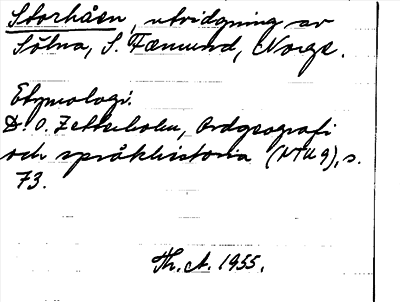 Storhåsn, utvidgning av
Sölna, S. Fæmund, Norge.
Etymologi.
D. O. Zetterholm, Ordgeografi
och språkhistoria (NTU 9), s.
73.
Th. A. 1955.